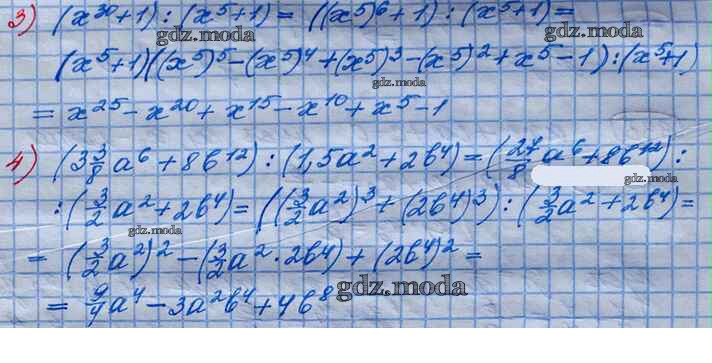 3) (x³⁰+1) : (x⁵+1) = ((x⁵)⁶+1) : (x⁵+1) =
gdz.moda gdz.moda
(x⁵+1)((x⁵)⁵-(x⁵)⁴+(x⁵)³-(x⁵)²+x⁵-1):(x⁵+1)
gdz.moda
= x²⁵-x²⁰+x¹⁵-x¹⁰+x⁵-1
4) (3 3/8 a⁶ + 8b¹²) : (1,5a² + 2b⁴) = (27/8 a⁶ + 8b¹²) :
gdz.moda gdz.moda
: (3/2 a² + 2b⁴) = ((3/2 a²)³ + (2b⁴)³) : (3/2 a² + 2b⁴) =
gdz.moda
= (3/2 a²)² - (3/2 a² · 2b⁴) + (2b⁴)² =
= 9/4 a⁴ - 3a²b⁴ + 4b⁸
gdz.moda
gdz.moda